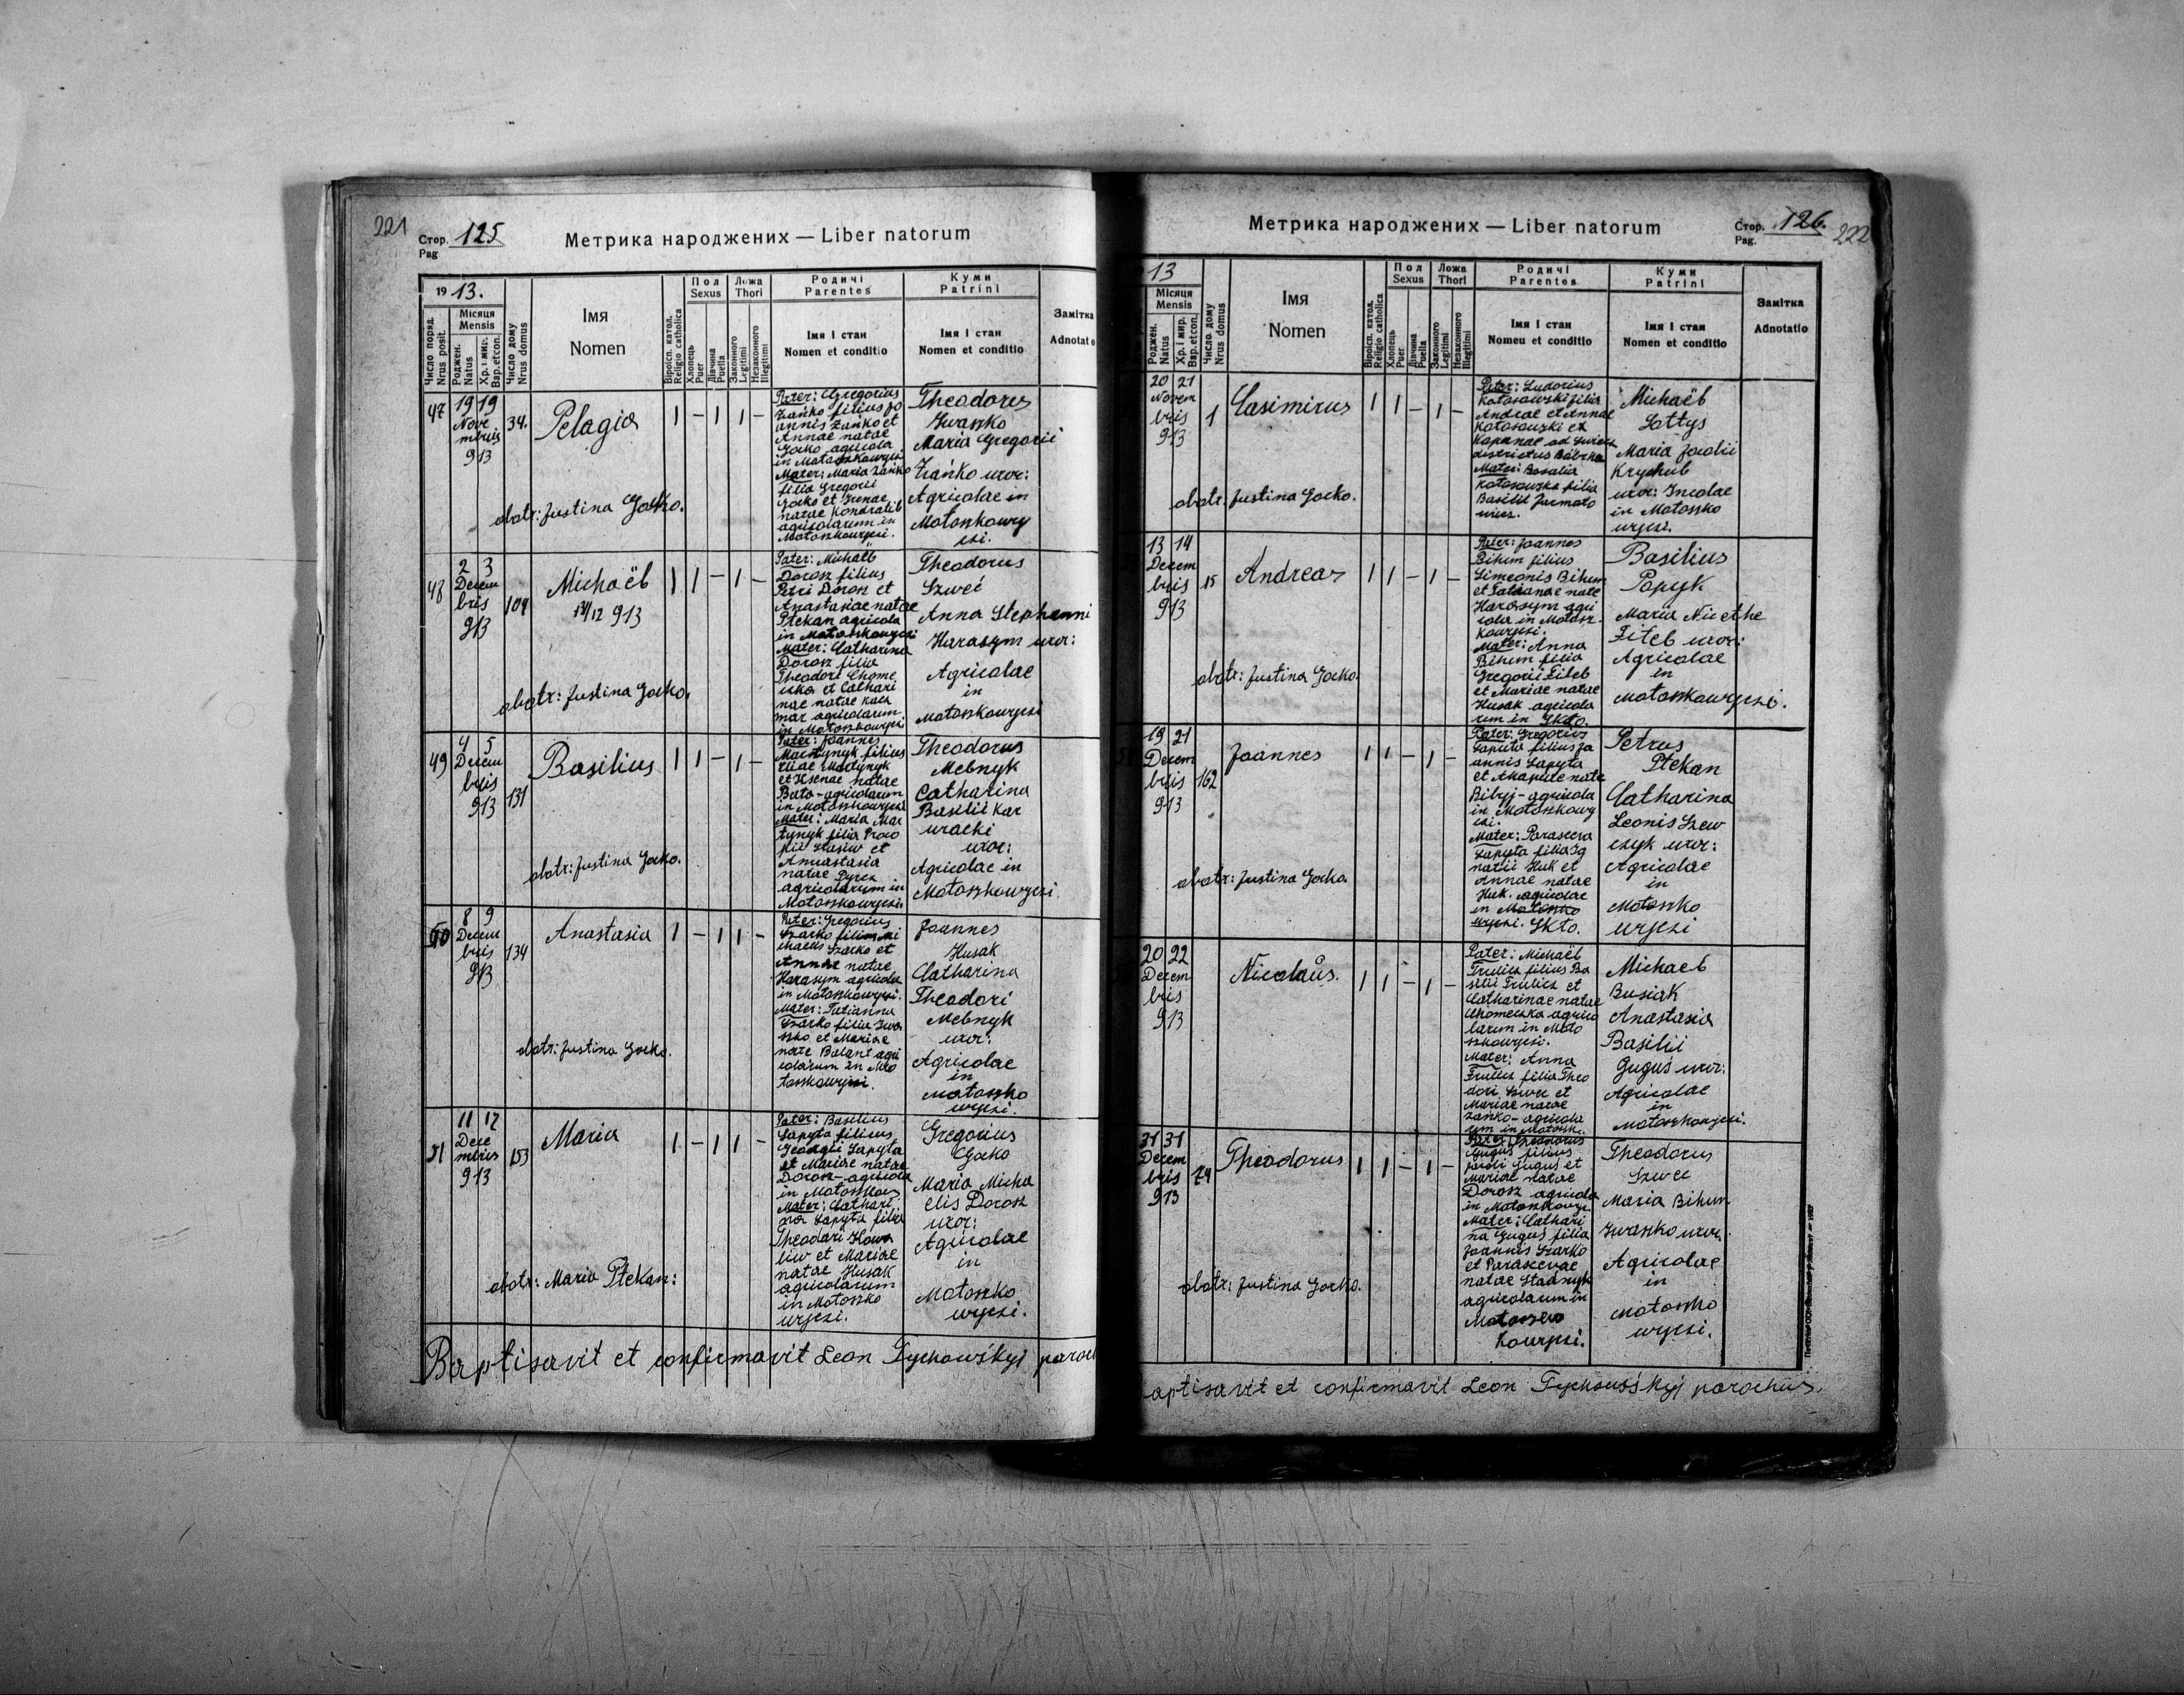 221
Стор. 125
Pag
Метрика народжених — Liber natorum
19 13.
Число поряд.
Nrus posit.
Місяця
Mensis
Роджен.
Natus
Хр. і мир.
Bap. et con.
Число дому
Nrus domus
Імя
Nomen
Віроісп. катол.
Religio catholica
Пол
Sexus
Хлопець
Puer
Дівчина
Puella
Ложа
Thori
Законного
Legitimi
Незаконного
Illegitimi
Родичі
Parentes
Імя і стан
Nomen et conditio
Куми
Patrini
Імя і стан
Nomen et conditio
Замітка
Adnotatio
47
19 19
Nove
mbris
913
34.
Pelagia
1 – 1 1 –
obstr: Justina Gocko.
Pater: Gregorius
Zańko filius Jo
annis Zańko et
Annae natae
Gocko agricola
in Motoszkowyczi
Mater: Maria Zańko
filia Gregorii
Gocko et Irenae
natae Kondratib
agricolarum in
Motoszkowyczi.
Theodorus
Iwaszko
Maria Gregorii
Zańko uxor:
Agricolae in
Motoszkowy
czi.
48
2 3
Decem
bris
913
104
Michaël
13/12 913
1 1 – 1 –
obstr: Justina Gocko.
Pater: Michaël
Dorosz filius
Petri Dorosz et
Anastasiae natae
Ptekan agricola
in Motoszkowyczi
Mater: Catharina
Dorosz filia
Theodori Chome
cska et Cathari
nae natae Kacz
mar agricolarum
in Motoszkowyczi
Theodorus
Szweć
Anna Stephanni
Harasym uxor:
Agricolae
in
Motoszkowyczi
49
4 5
Decem
bris
913
131
Basilius
1 1 – 1 –
obstr: Justina Gocko.
Pater: Joannes
Martynyk filius
Eliae Martynyk
et Ksenae natae
Bato - agricolarum
in Motoszkowyczi
Mater: Maria Mar
tynyk filia Proco
pii Stasiw et
Annastasia
natae Pyrez
agricolarum in
Motoszkowyczi.
Theodorus
Melnyk
Catharina
Basilii Kar
wacki
uxor:
Agricolae in
Motoszkowyczi
50
8 9
Decem
bris
913
134
Anastasia
1 – 1 1 –
obstr: Justina Gocko.
Pater: Gregorius
Szarko filius Mi
chaelis Szarko et
Annae natae
Harasym agricola
in Motoszkowyczi.
Mater: Tatianna
Szarko filia Iwa
szko et Mariae
nate Balant agri
colarum in Mo
toszkowyczi.
Joannes
Husak
Catharina
Theodori
Melnyk
uxor:
Agricolae
in
Motoszko
wyczi.
51
11 12
Dece
mbris
913
153
Maria
1 – 1 1 –
obstr: Maria Ptekan:
Pater: Basilius
Sapyta filius
Georgii Sapyta
et Mariae natae
Dorosz - agricola
in Motoszkow
Mater: Cathari
na Sapyta filia
Theodori Kowa
liw et Mariae
natae Husak
agricolarum
in Motoszko
wyczi.
Gregorius
Gocko
Maria Micha
elis Dorosz
uxor:
Agricolae
in
Motoszko
wyczi.
Baptisavit et confirmavit Leon Tychowśkyj paroch
Метрика народжених — Liber natorum
Стор. 126.
Pag.
222
13
Місяця
Mensis
Роджен.
Natus
Хр. і мир.
Bap. et con.
Число дому
Nrus domus
Імя
Nomen
Віроісп. катол.
Religio catholica
Пол
Sexus
Хлопець
Puer
Дівчина
Puella
Ложа
Thori
Законного
Legitimi
Незаконного
Illegitimi
Родичі
Parentes
Імя і стан
Nomeu et conditio
Куми
Patrini
Імя і стан
Nomen et conditio
Замітка
Adnotatio
20 21
Novem
bris
913
1
Casimirus
1 1 – 1 –
obstr. Justina Gocko.
Pater: Ludovius
Kotosowski filia
Andreae et Annae
Kotosowski ex
districtus Bóbrka
Mater: Rosalia
Kotosowska filia
Basilii Jarmoto
wicz.
Michaël
Sottys
Maria Jacobi
Krychub
uxor: Incolae
in Motoszko
wyczi.
13 14
Decem
bris
913
15
Andreas
1 1 – 1 –
obstr: Justina Gocko.
Pater: Joannes
Bihun filius
Simeonis Bihun
et Tatianae nate
Harasym agri
cola in Motosz
kowyczi.
Mater: Anna
Bihun filia
Gregorii Titeb
et Mariae natae
Husak agricola
rum in Skto.
Basilius
Popyk
Maria Nicethe
Titeb uxor:
Agricolae
in
Motoszkowyczi.
19 21
Decem
bris
913
162
Joannes
1 1 – 1 –
obstr: Justina Gocko.
Pater: Gregorius
Sapyta filius Jo
annis Sapyta
et Akapiae nate
Bibyj - agricola
in Motoszkowy
czi.
Mater: Parasceva
Sapyta filia Ig
natii Huk et
Annae natae
Huk. agricolae
in Motoszko
wyczi. Skto.
Petrus
Ptekan
Catharina
Leonis Szew
czyk uxor:
Agricolae
in
Motoszko
wyczi
20 22
Decem
bris
913
Nicolaüs.
1 1 – 1 –
Pater: Michaël
Frulicz filius Ba
silii Frulicz et
Catharinae natae
Chomecska agrico
larum in Moto
szkowyczi.
Mater: Anna
Frulicz filia Theo
dori Szwec et
Mariae natae
Zańko - agricola
rum in Motoszk.
Michaeł
Busiak
Anastasia
Basilii
Guguś uxor:
Agricolae
in
Motoszkowyczi.
31 31
Decem
bris
913
74
Theodorus
1 1 – 1 –
obstr: Justina Gocko.
Pater: Theodorus
Guguś filius
Jacobi Guguś et
Mariae natae
Dorosz agricola
in Motoszkowycz.
Mater: Cathari
na Guguś filia
Joannis Szarko
et Parascevae
natae Stadnyk
agricolarum in
kowyczi.
Theodorus
Szwec
Maria Bihun
Iwaszko uxor.
Agricolae
in
Motoszko
wyczi.
aptisavit et confirmavit Leon Tychowśkyj parochus.